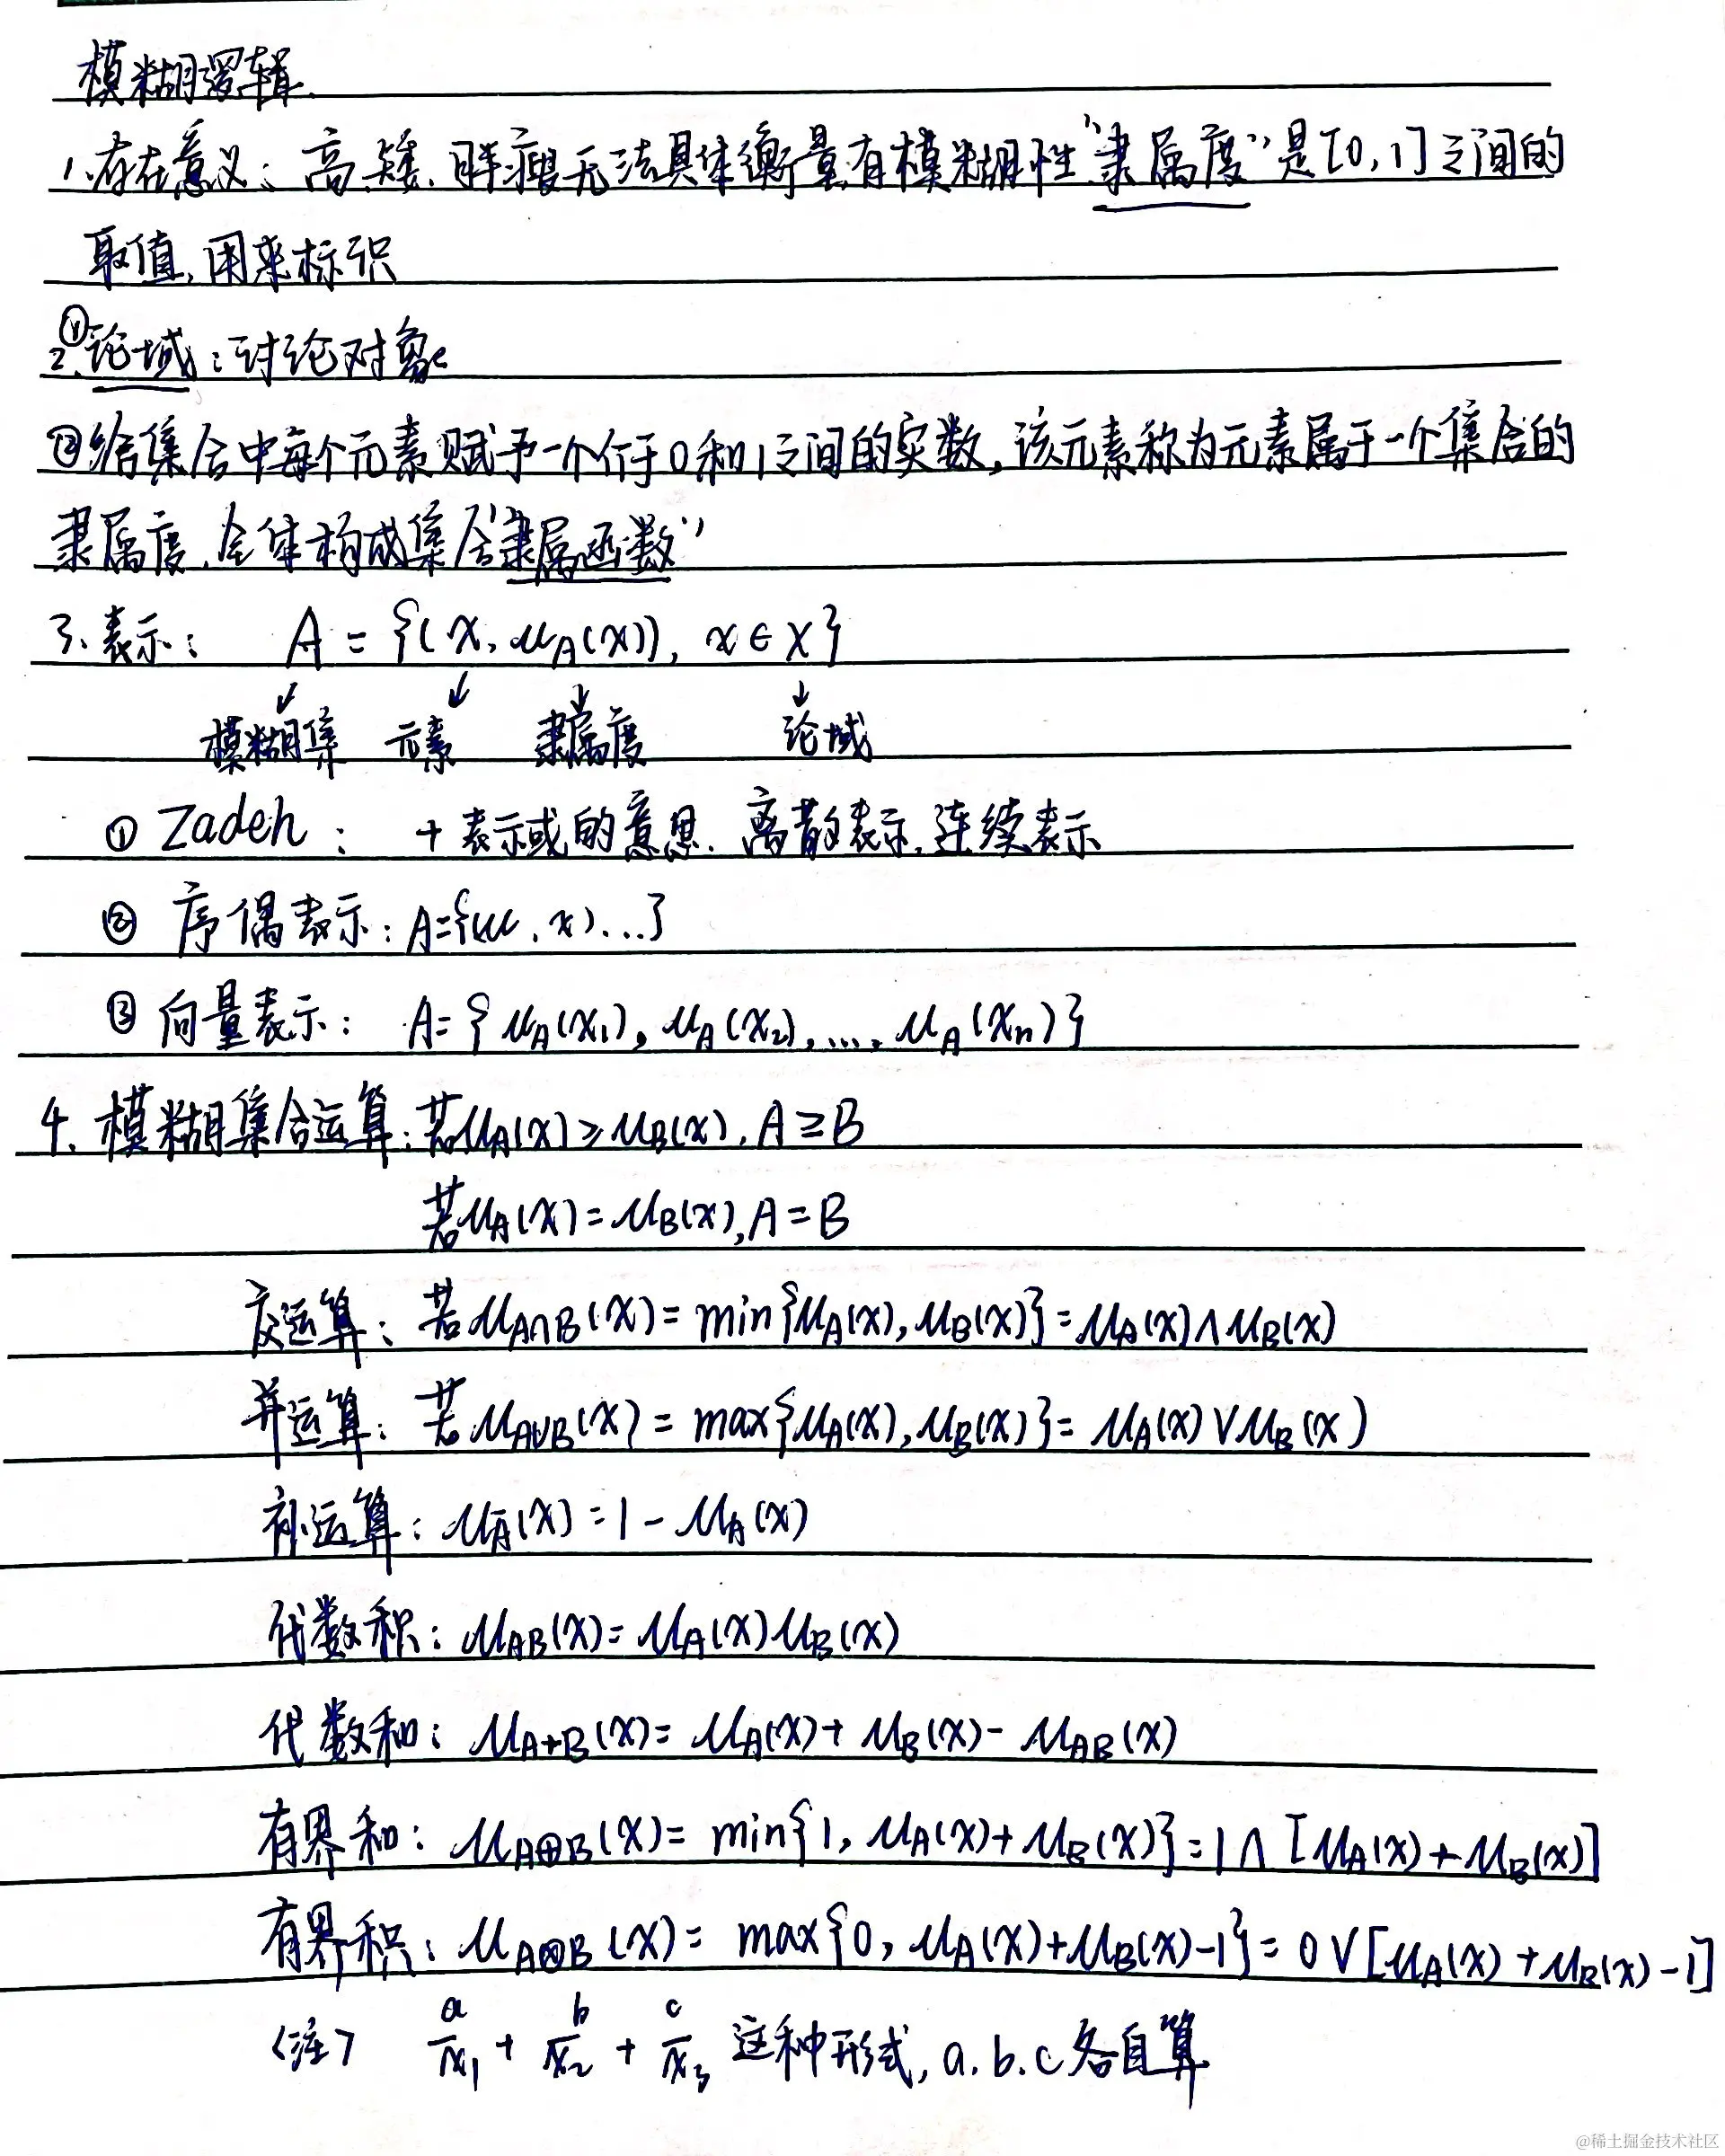 模糊逻辑
1.存在意义:高矮、胖瘦无法具体衡量有模糊性“隶属度”是[0,1]之间的
取值,用来标识
2.①论域:讨论对象
②给集合中每个元素赋予一个介于0和1之间的实数,该元素称为元素属于一个集合的
隶属度,全体构成集合“隶属函数”
3.表示: A={(x,μA(x)),x∈X}
↙ ↙ ↓ ↓
模糊集 元素 隶属度 论域
①Zadeh: +表示或的意思.离散表示,连续表示
②序偶表示:A={(μ,x)...}
③向量表示: A={μA(x₁),μA(x₂),...,μA(xn)}
4.模糊集合运算:若μA(x)≥μB(x),A≥B
若μA(x)=μB(x),A=B
交运算:若μA∩B(x)=min{μA(x),μB(x)}=μA(x)∧μB(x)
并运算:若μA∪B(x)=max{μA(x),μB(x)}=μA(x)∨μB(x)
补运算:μĀ(x)=1-μA(x)
代数积:μAB(x)=μA(x)μB(x)
代数和:μA+B(x)=μA(x)+μB(x)-μAB(x)
有界和:μA⊕B(x)=min{1,μA(x)+μB(x)}=1∧[μA(x)+μB(x)]
有界积:μA⊗B(x)=max{0,μA(x)+μB(x)-1}=0∨[μA(x)+μB(x)-1]
<注> a/x₁+b/x₂+c/x₃ 这种形式,a.b.c各自算
@稀土掘金技术社区